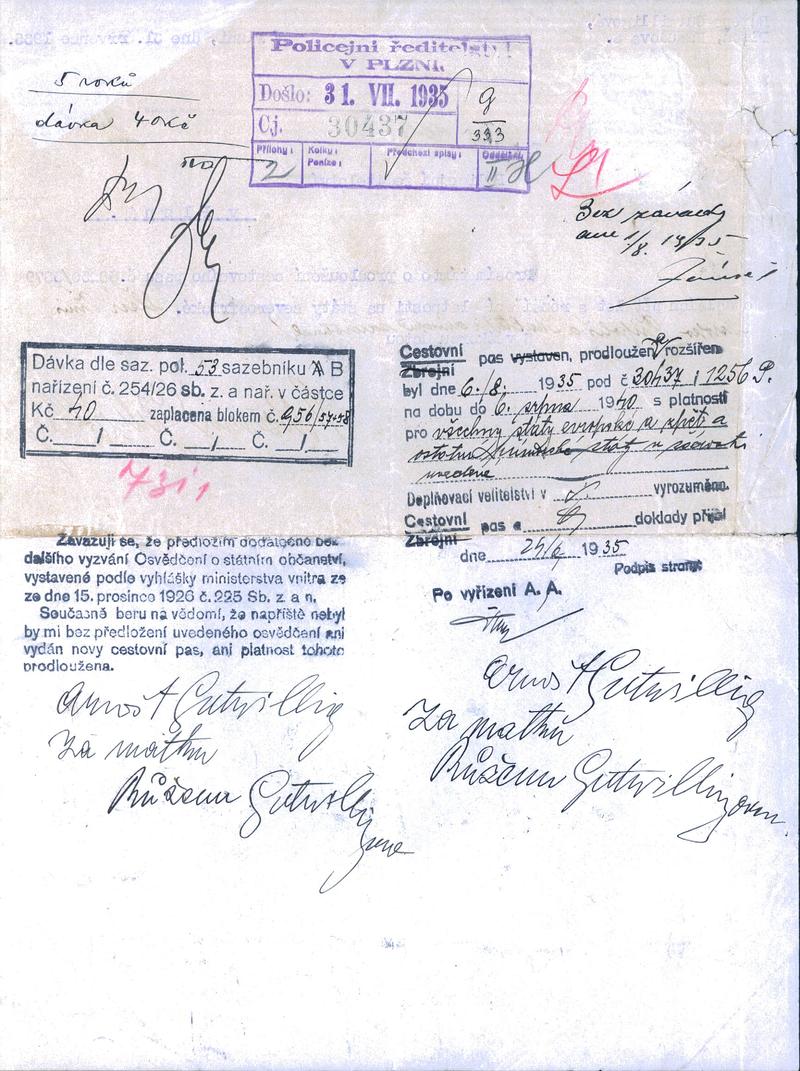 5 roků
dávka 40Kč
Policejní ředitelství
V PLZNI.
Došlo: 31. VII. 1935
9
333
Čj. 30437
Přílohy:
Kolky:
Peníze:
Předchozí spisy:
Oddělení:
2
II
Bez závady
dne 1/8. 1935
Dávka dle saz. pol. 53 sazebníku A B
nařízení č. 254/26 sb. z. a nař. v částce
Kč 40 zaplacena blokem č.
Č. / Č. / Č. /
7311
Cestovní pas vystaven, prodloužen rozšířen
Zbrojní
byl dne 6./8. 1935 pod č 30437 i 1256 P.
na dobu do 6. srpna 1940 s platností
pro všechny státy evropské a zpět a
ostatní státy
uvedené
Doplňovací velitelství v vyrozuměno.
Cestovní pas a doklady přijal
Zbrojní
dne 1935
Podpis strany:
Po vyřízení A. A.
Zavazuji se, že předložím dodatečně bez
dalšího vyzvání Osvědčení o státním občanství,
vystavené podle vyhlášky ministerstva vnitra ze
ze dne 15. prosince 1926 č. 225 Sb. z. a n.
Současně beru na vědomí, že napříště nebyl
by mi bez předložení uvedeného osvědčení ani
vydán nový cestovní pas, ani platnost tohoto
prodloužena.
Arnošt Gutwillig
Za matku
Růžena Gutwilligova
Arnošt Gutwillig
Za matku
Růžena Gutwilligova